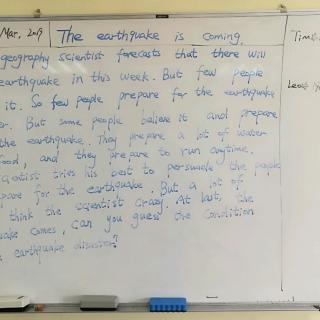 Mar, 2019 The earthquake is coming.
geography scientist forecasts that there will
earthquake in this week. But few people
it. So few people prepare for the earthquake
er. But some people believe it and prepare
the earthquake. They prepare a lot of water
food, and they prepare to run anytime.
scientist tries his best to persuade the people
pare for the earthquake. But a lot of
think the scientist crazy. At last, the
uake comes, can you guess the condition
earthquake disaster?
Time